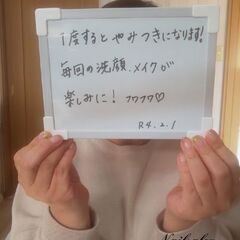 1度するとやみつきになります!
毎回の洗顔、メイクが
楽しみに! フワフワ♡
R4.2.1